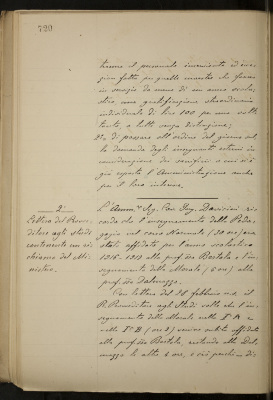 720
tenne il personale inserviente ed ecce-
zion fatta per quelle maestre che fossero
in servizio da meno di un anno scola-
stico una gratificazione straordinaria
individuale di lire 100 per una volta
tanto, a tutti senza distinzione;
di passare all'ordine del giorno sul-
la domanda degli insegnanti esterni in
considerazione dei sacrifici a cui s'è
già esposta l'Amministrazione anche
per il loro interesse.
2
Lettera del Provve-
ditore agli studi
contenente un ri-
chiamo del Mi-
nistero.
L'Amm. Sig. Cav. Ing. Davicini ri-
corda che l'insegnamento della Peda-
gogia nel corso Normale (20 ore) era
stato affidato per l'anno scolastico
1918-1919 alla prof.ssa Bertola e l'in-
segnamento della Morale (6 ore) alla
prof.ssa Dalmazzo.
Con lettera del 26 febbraio u.s. il
R. Provveditore agli Studi volle che l'in-
segnamento della Morale nella I A e
nella I B (ore 2) venisse subito affidato
alla prof.ssa Bertola, restando alla Dal-
mazzo le altre 4 ore, e ciò perché in di-